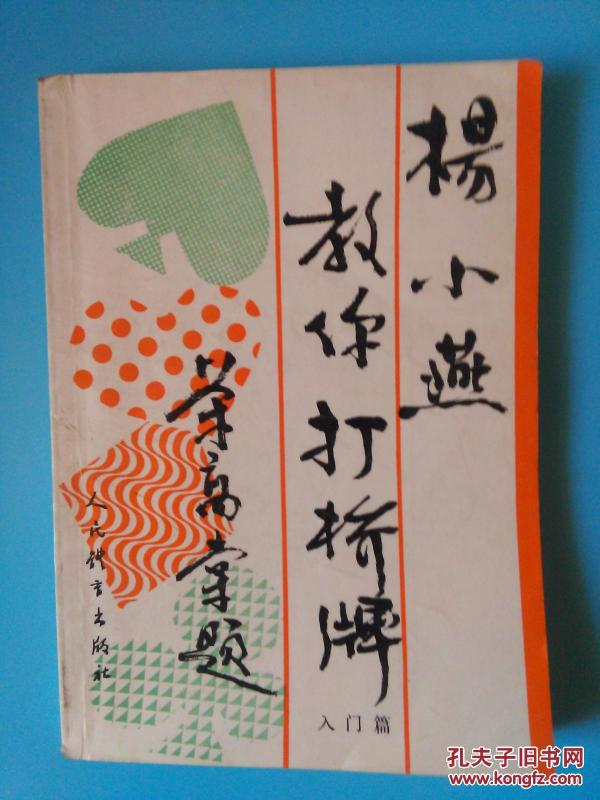 楊小燕
教你打桥牌
入门篇
荣高棠题
人民体育出版社
孔夫子旧书网
www.kongfz.com